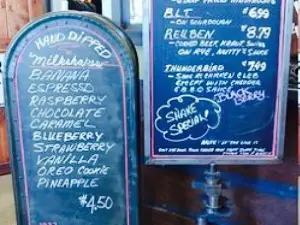 HAND DIPPED
Milkshakes
BANANA
ESPRESSO
RASPBERRY
CHOCOLATE
CARAMEL
BLUEBERRY
STRAWBERRY
VANILLA
OREO COOKIE
PINEAPPLE
$4.50
B.L.T $6.99
- ON SOURDOUGH
REUBEN $8.79
- CORNED BEEF, KRAUT, SWISS
ON RYE,
THUNDERBIRD $7.49
- SAME AS
EXCEPT WITH CHEDDAR
& B B Q SAUCE
BLACKBERRY
SHAKE
SPECIAL!